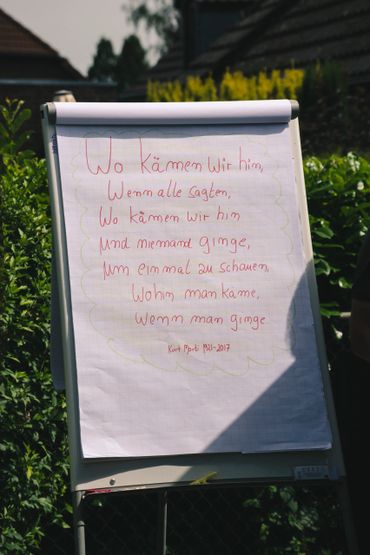 Wo kämen wir hin,
Wenn alle sagten,
Wo kämen wir hin
und niemand ginge,
um einmal zu schauen,
Wohin man käme,
Wenn man ginge
Kurt Marti 1921-2017